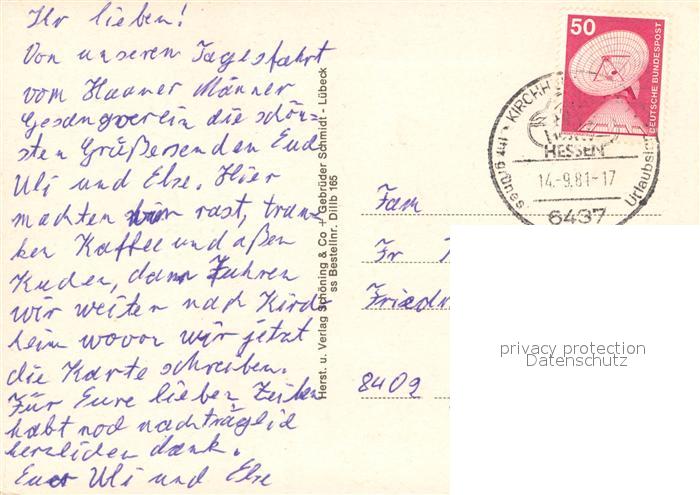 Ihr lieben!
Von unseren Tagesfahrt
vom Haaner Männer
Gesangverein die schön-
sten Grüße senden Eud
Uli und Else. Hier
machten wir rast, tran-
ken Kaffee und aßen
Kuden, dann fuhren
wir weiten nach Kird
heim wovon wir jetzt
die Karte schreiben.
Für Eure lieben Zeilen
habt nod nachträglid
herzliden dank.
Euer Uli und Else
Herst. u. Verlag Schöning & Co + Gebrüder Schmidt - Lübeck
ss Bestellnr. Dillb 165
50
DEUTSCHE BUNDESPOST
KIRCHH
HESSEN
14.-9.81-17
6437
Urlaubs
Fam
Fr
Friedr
8409
privacy protection
Datenschutz